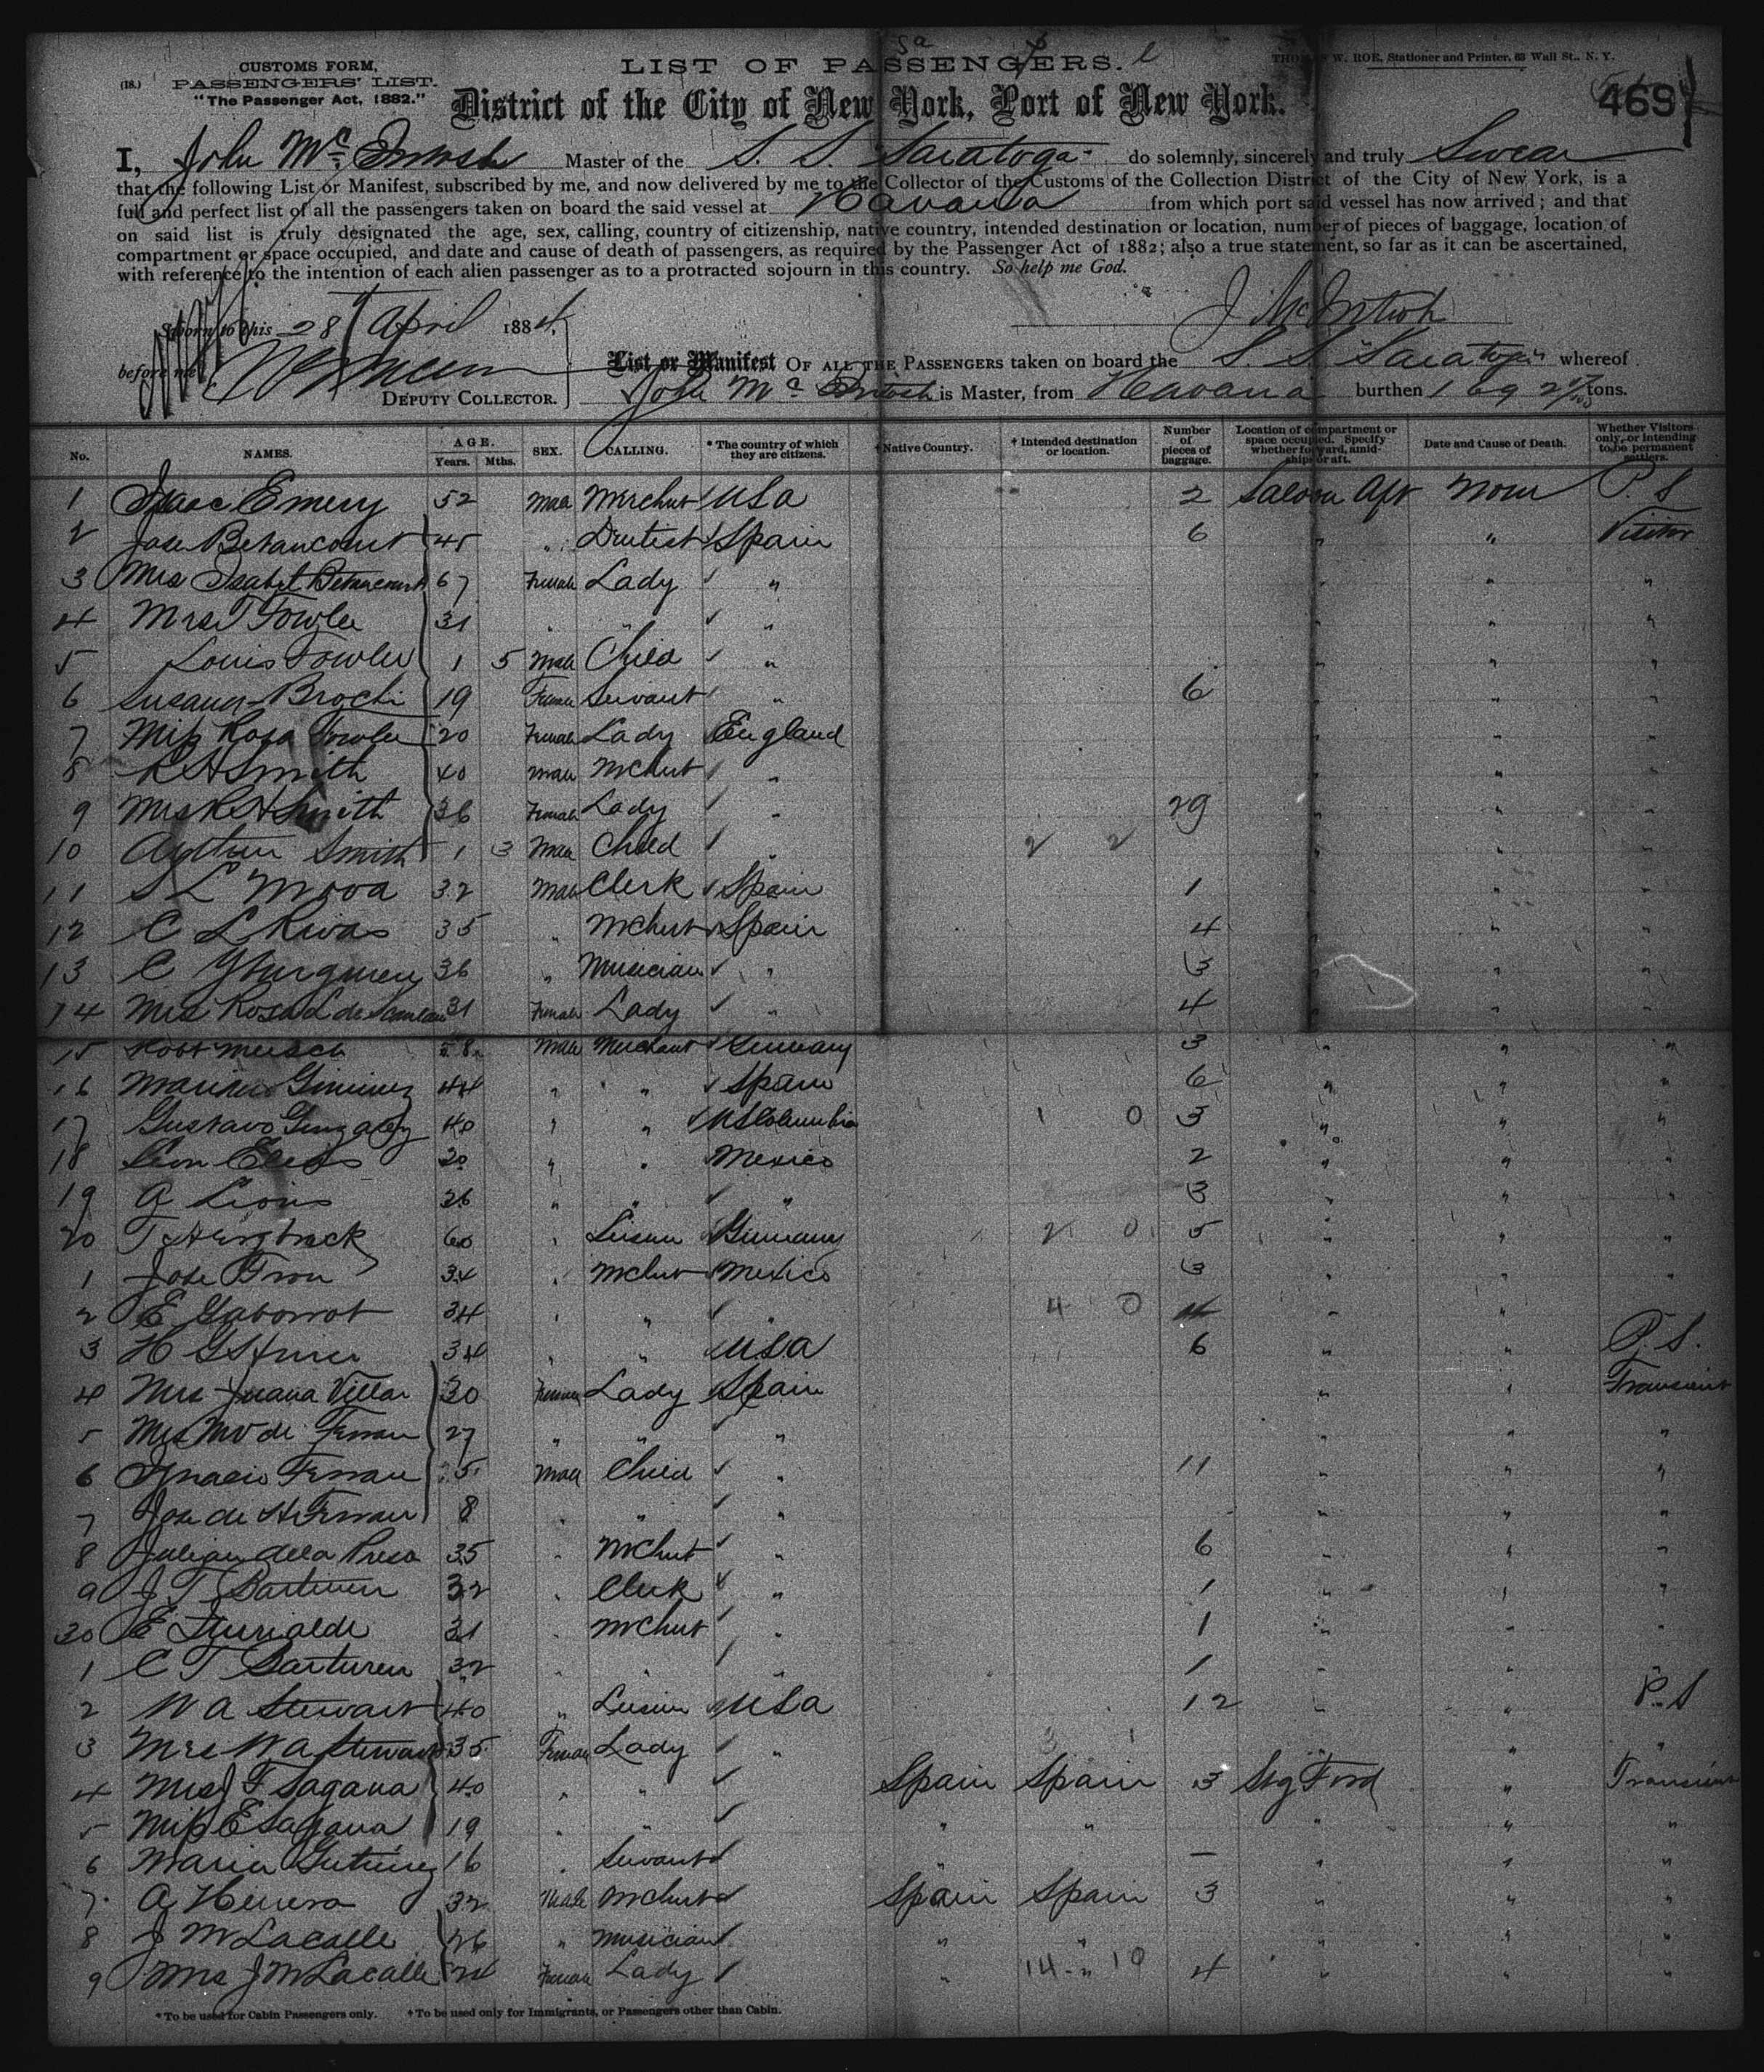 CUSTOMS FORM,
(18.) PASSENGERS' LIST.
"The Passenger Act, 1882."
LIST OF PASSENGERS.
THOMAS W. ROE, Stationer and Printer, 63 Wall St., N. Y.
District of the City of New York, Port of New York.
469
I, John Mc Intosh Master of the S. S. Saratoga do solemnly, sincerely and truly Swear
that the following List or Manifest, subscribed by me, and now delivered by me to the Collector of the Customs of the Collection District of the City of New York, is a
full and perfect list of all the passengers taken on board the said vessel at Havana from which port said vessel has now arrived; and that
on said list is truly designated the age, sex, calling, country of citizenship, native country, intended destination or location, number of pieces of baggage, location of
compartment or space occupied, and date and cause of death of passengers, as required by the Passenger Act of 1882; also a true statement, so far as it can be ascertained,
with reference to the intention of each alien passenger as to a protracted sojourn in this country. So help me God.
J McIntosh
Sworn to this 28 April 1884.
before me
DEPUTY COLLECTOR.
List or Manifest OF ALL THE PASSENGERS taken on board the S. S. "Saratoga" whereof
John Mc Intosh is Master, from Havana burthen 1692 tons.
No. NAMES. AGE. Years. Mths. SEX. CALLING. * The country of which they are citizens. † Native Country. † Intended destination or location. Number of pieces of baggage. Location of compartment or space occupied. Specify whether forward, amidships or aft. Date and Cause of Death. Whether Visitors only, or intending to be permanent settlers.
1 Isaac Emery 52 Male Merchnt USA 2 Saloon Aft None P. S
2 Jose Betancourt 45 " Dentist Spain 6 " " Visitor
3 Mrs Isabel Betancourt 67 Female Lady " " " "
4 Mrs T Fowler 31 " " " " " "
5 Louis Fowler 1 5 Male Child " " " "
6 Susana Brochi 19 Female Servant " 6 " " "
7 Miss Rosa Fowler 20 Female Lady England " " "
8 R H Smith 40 Male Mchnt " " " "
9 Mrs R H Smith 36 Female Lady " 29 " " "
10 Smith 1 3 Male Child " 2 2 " " "
11 S L Mora 32 Male Clerk Spain 1 " " "
12 C L Rivas 35 " Mchnt Spain 4 " " "
13 C 36 " Musician " 3 " " "
14 Mrs Rosa L de 31 Female Lady " 4 " " "
15 Robt 58 Male Merchant Germany 3 " " "
16 Giminez 44 " " Spain 6 " " "
17 Gustavo Gonzalez 40 " " US Columbia 1 0 3 " " "
18 Leon 20 " " Mexico 2 " " "
19 A Lions 36 " " " 3 " " "
20 T 60 " Leisure Germany 2 0 5 " " "
1 Jose Tron 34 " Mchnt Mexico 3 " " "
2 E 34 " " " 4 0 " "
3 H G 34 " " USA 6 " " P. S.
4 Mrs Juana Villar 30 Female Lady Spain " " Transient
5 Mrs M V de Ferran 27 " " " " " "
6 Ignacio Ferran 5 Male Child " 11 " " "
7 Jose de H Ferran 8 " " " " " "
8 Julian de la Presa 35 " Mchnt " 6 " " "
9 J T 32 " Clerk " 1 " " "
30 E Iturialde 31 " Mchnt " 1 " " "
1 C T 32 " " " 1 " " "
2 W A Stewart 40 " Leisure USA 12 " " P. S
3 Mrs W A Stewart 35 Female Lady " 3 1 " "
4 Mrs J F Sagana 40 " " Spain Spain 3 Stg Frd " Transient
5 Miss E Sagana 19 " " " " " " "
6 Maria Gutierrez 16 " Servant " — " " "
7 A Herrera 32 Male Mchnt Spain Spain 3 " " "
8 J M Lacalle 26 " Musician " " " " "
9 Mrs J M Lacalle Female Lady " 14 - " 10 4 " " "
* To be used for Cabin Passengers only. † To be used only for Immigrants, or Passengers other than Cabin.